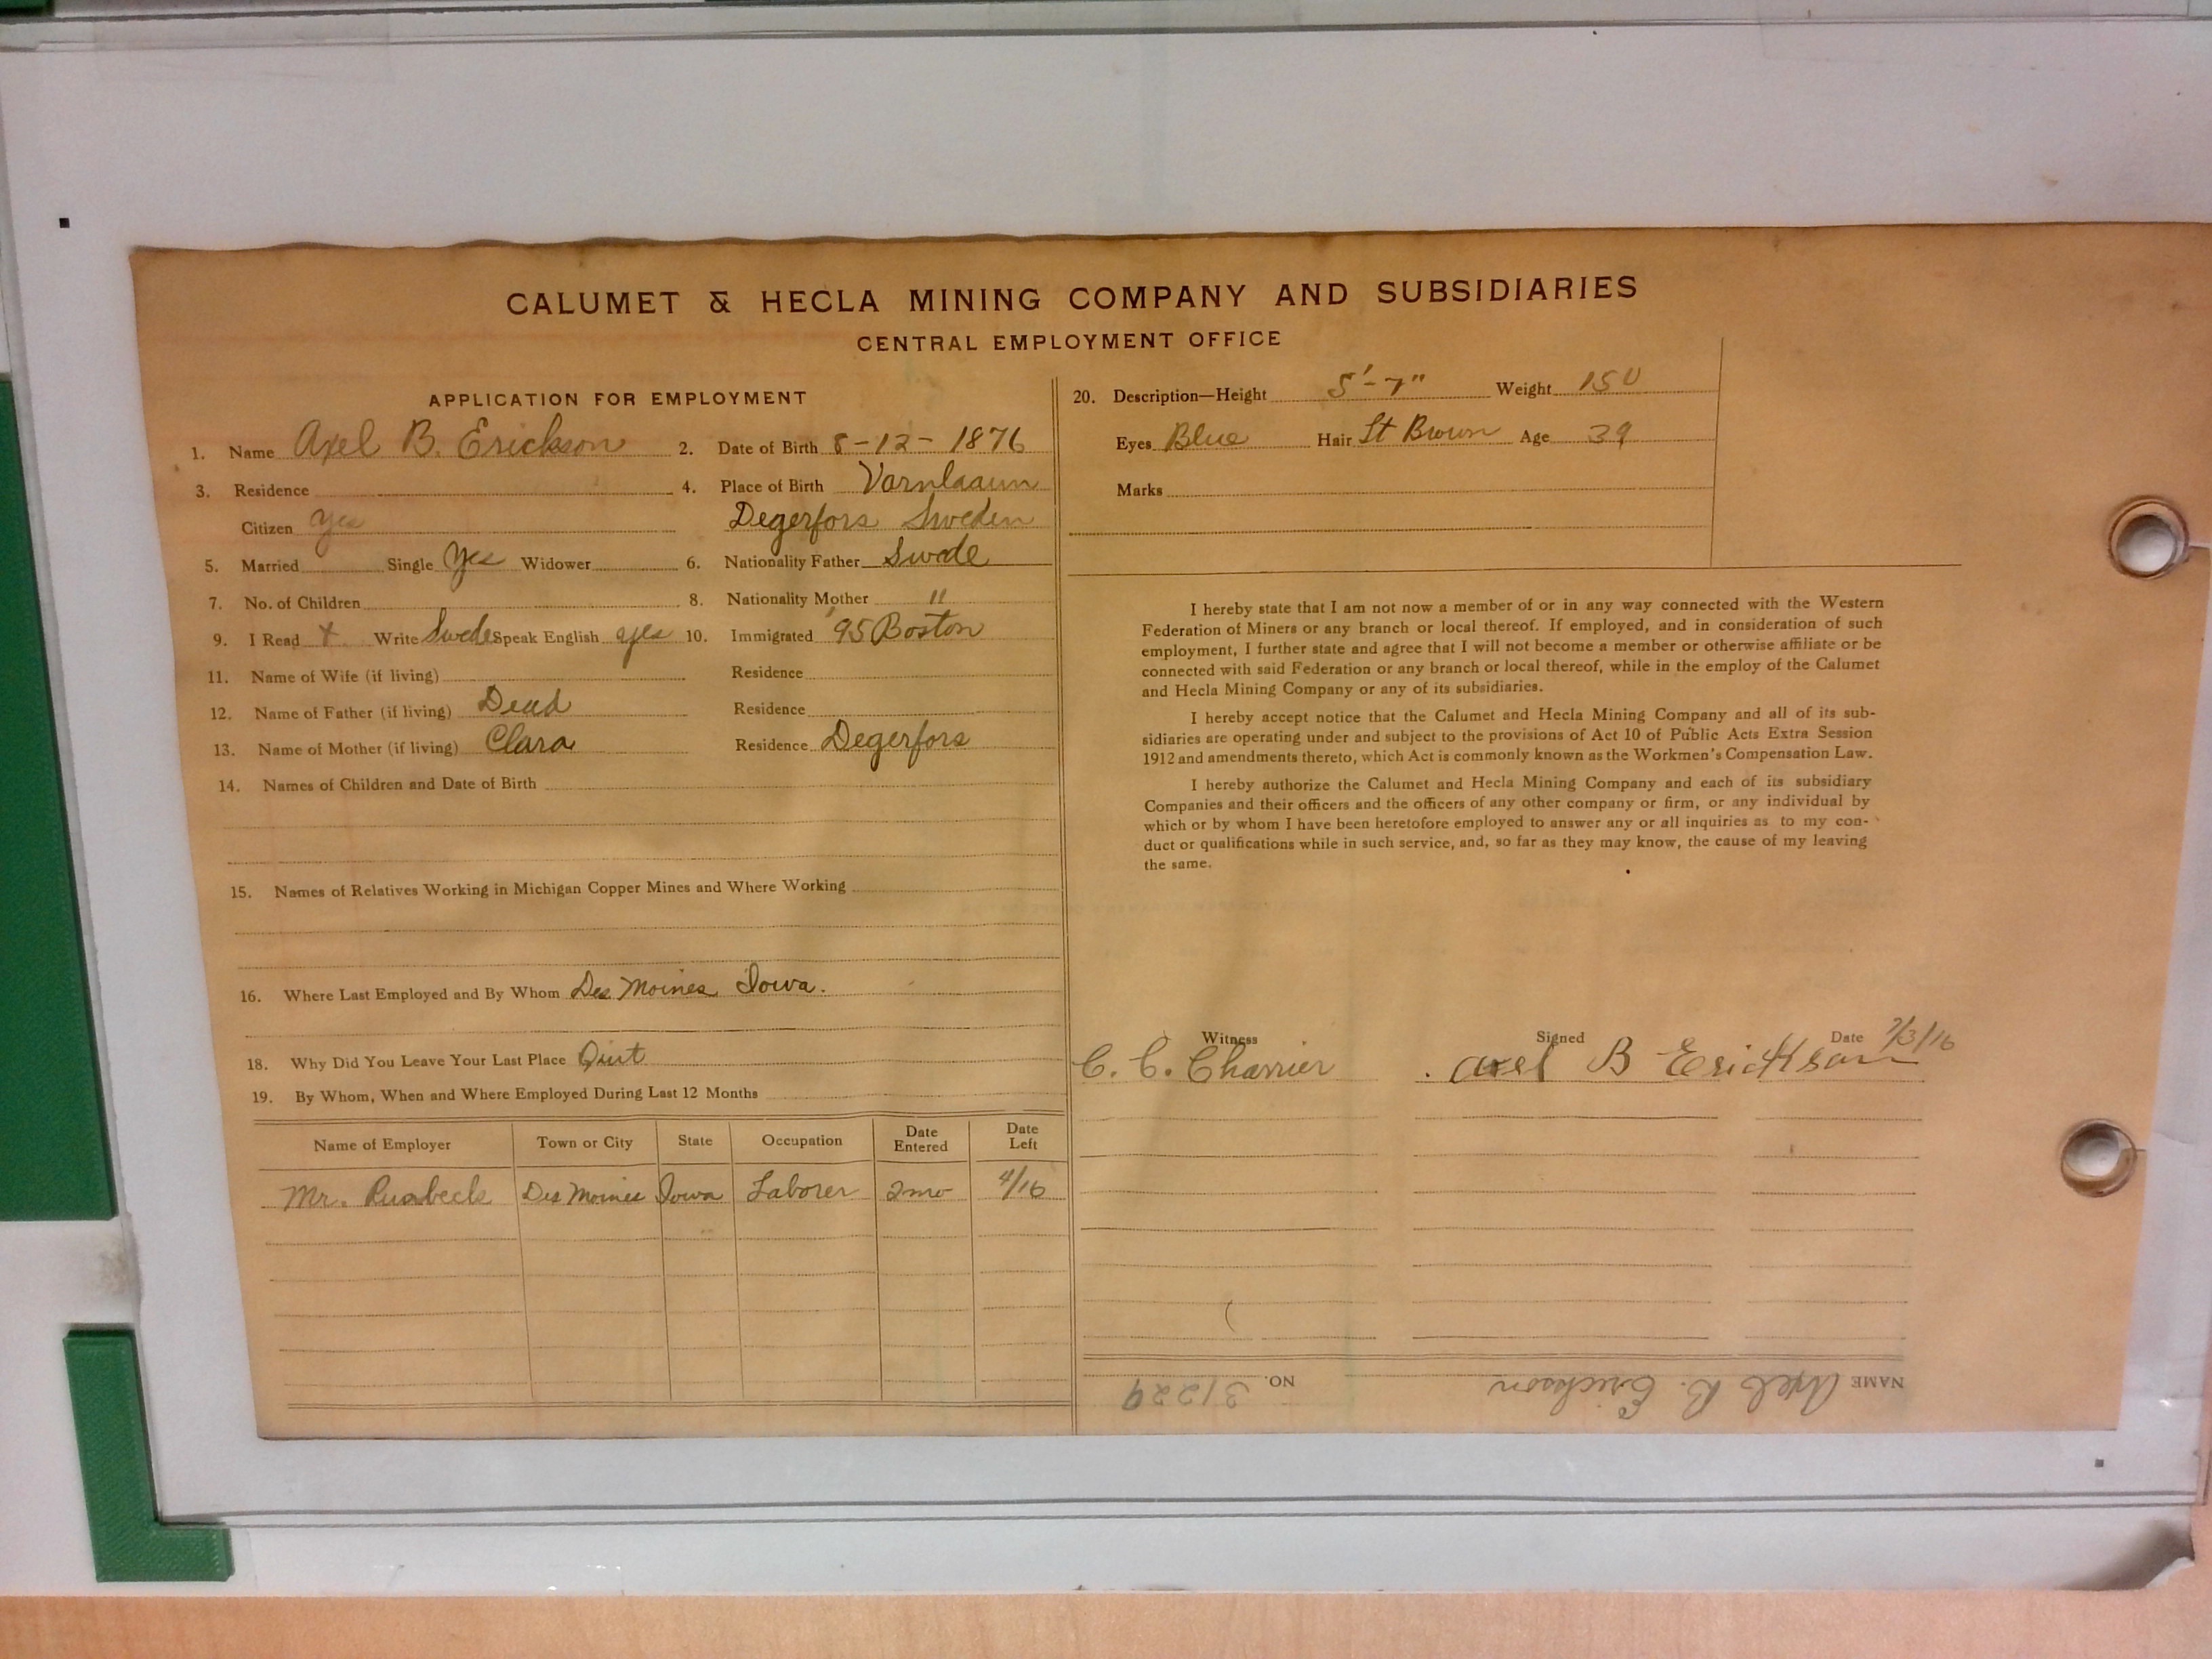 CALUMET & HECLA MINING COMPANY AND SUBSIDIARIES
CENTRAL EMPLOYMENT OFFICE
APPLICATION FOR EMPLOYMENT
1. Name Axel B. Erickson 2. Date of Birth 8-12-1876
3. Residence 4. Place of Birth Varnlaaun
Citizen yes Degerfors Sweden
5. Married Single Yes Widower 6. Nationality Father Swede
7. No. of Children 8. Nationality Mother "
9. I Read + Write Swede Speak English yes 10. Immigrated '95 Boston
11. Name of Wife (if living) Residence
12. Name of Father (if living) Dead Residence
13. Name of Mother (if living) Clara Residence Degerfors
14. Names of Children and Date of Birth
15. Names of Relatives Working in Michigan Copper Mines and Where Working
16. Where Last Employed and By Whom Des Moines Iowa.
18. Why Did You Leave Your Last Place Quit
19. By Whom, When and Where Employed During Last 12 Months
Name of Employer Town or City State Occupation Date Entered Date Left
Mr. Des Moines Iowa Laborer 2 mo 4/16
20. Description—Height 5'-7" Weight 150
Eyes Blue Hair Lt Brown Age 39
Marks
I hereby state that I am not now a member of or in any way connected with the Western
Federation of Miners or any branch or local thereof. If employed, and in consideration of such
employment, I further state and agree that I will not become a member or otherwise affiliate or be
connected with said Federation or any branch or local thereof, while in the employ of the Calumet
and Hecla Mining Company or any of its subsidiaries.
I hereby accept notice that the Calumet and Hecla Mining Company and all of its sub-
sidiaries are operating under and subject to the provisions of Act 10 of Public Acts Extra Session
1912 and amendments thereto, which Act is commonly known as the Workmen's Compensation Law.
I hereby authorize the Calumet and Hecla Mining Company and each of its subsidiary
Companies and their officers and the officers of any other company or firm, or any individual by
which or by whom I have been heretofore employed to answer any or all inquiries as to my con-
duct or qualifications while in such service, and, so far as they may know, the cause of my leaving
the same.
Witness Signed Date 7/3/16
C. C. Charrier Axel B Erickson
NAME Axel B. Erickson NO. 31229